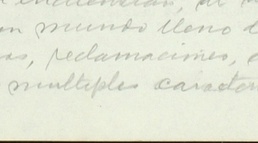 un mundo lleno d
as, reclamaciones, d
multiples caracter